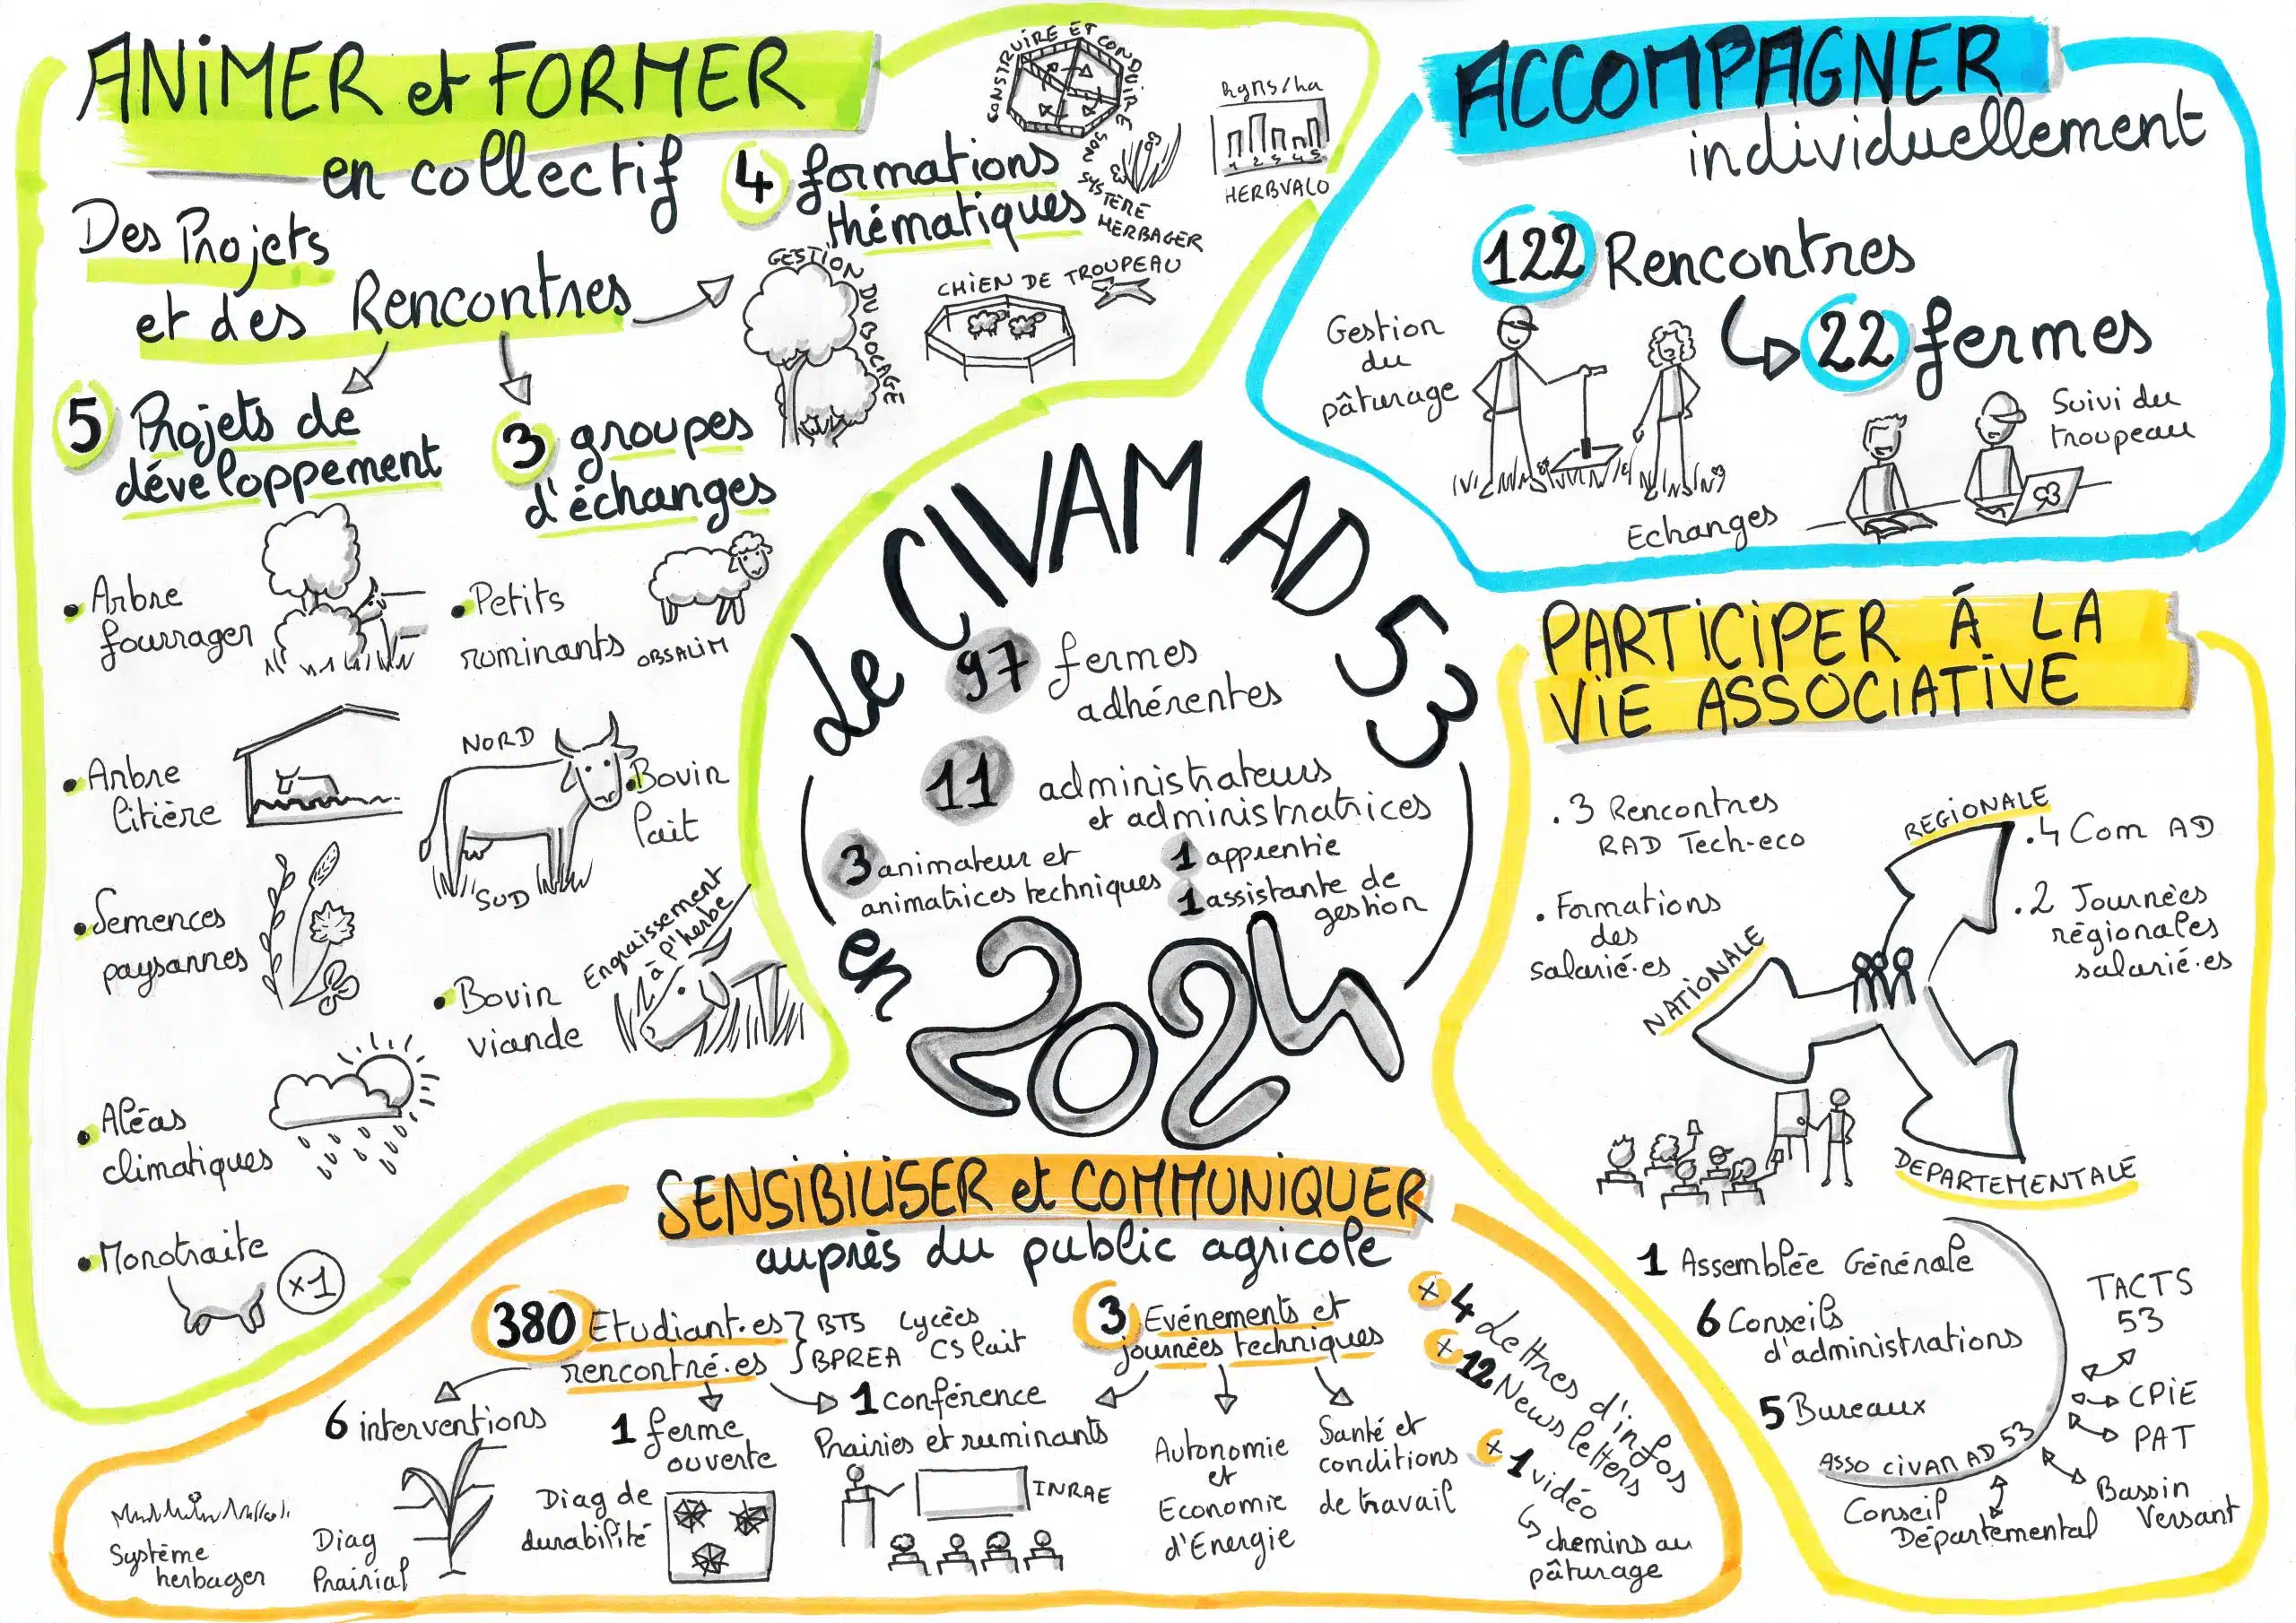 ANIMER et FORMER
en collectif
Des Projets
et des Rencontres
4 formations
thématiques
CONSTRUIRE ET CONDUIRE SON SYSTÈME HERBAGER
kgms/ha
1 2 3 4 5
HERBVALO
GESTION DU BOCAGE
CHIEN DE TROUPEAU
5 Projets de
développement
• Arbre
fourrager
• Arbre
litière
• Semences
paysannes
• Aléas
climatiques
• Monotraite
x1
3 groupes
d'échanges
• Petits
ruminants
OBSALIM
NORD
SUD
• Bovin
lait
• Bovin
viande
Engraissement
à l'herbe
ACCOMPAGNER
individuellement
122 Rencontres
22 fermes
Gestion
du
pâturage
Suivi du
troupeau
Echanges
Le CIVAM AD 53
97 fermes
adhérentes
11 administrateurs
et administratrices
3 animateur et
animatrices techniques
1 apprentie
1 assistante de
gestion
en 2024
PARTICIPER À LA
VIE ASSOCIATIVE
. 3 Rencontres
RAD Tech-eco
. Formations
des
salarié·es
NATIONALE
RÉGIONALE
. 4 Com AD
. 2 Journées
régionales
salarié·es
DEPARTEMENTALE
1 Assemblée Générale
6 Conseils
d'administrations
5 Bureaux
ASSO CIVAM AD 53
TACTS
53
CPIE
PAT
Bassin
Versant
Conseil
Départemental
SENSIBILISER et COMMUNIQUER
auprès du public agricole
380 Etudiant·es
rencontré·es
BTS Lycées
BPREA CS lait
6 interventions
Système
herbager
Diag
Prairial
1 ferme
ouverte
Diag de
durabilité
1 conférence
Prairies et ruminants
INRAE
3 Evénements et
journées techniques
Autonomie
et
Economie
d'Energie
Santé et
conditions
de travail
x 4 Lettres d'infos
x 12 Newsletters
x 1 vidéo
chemins au
pâturage